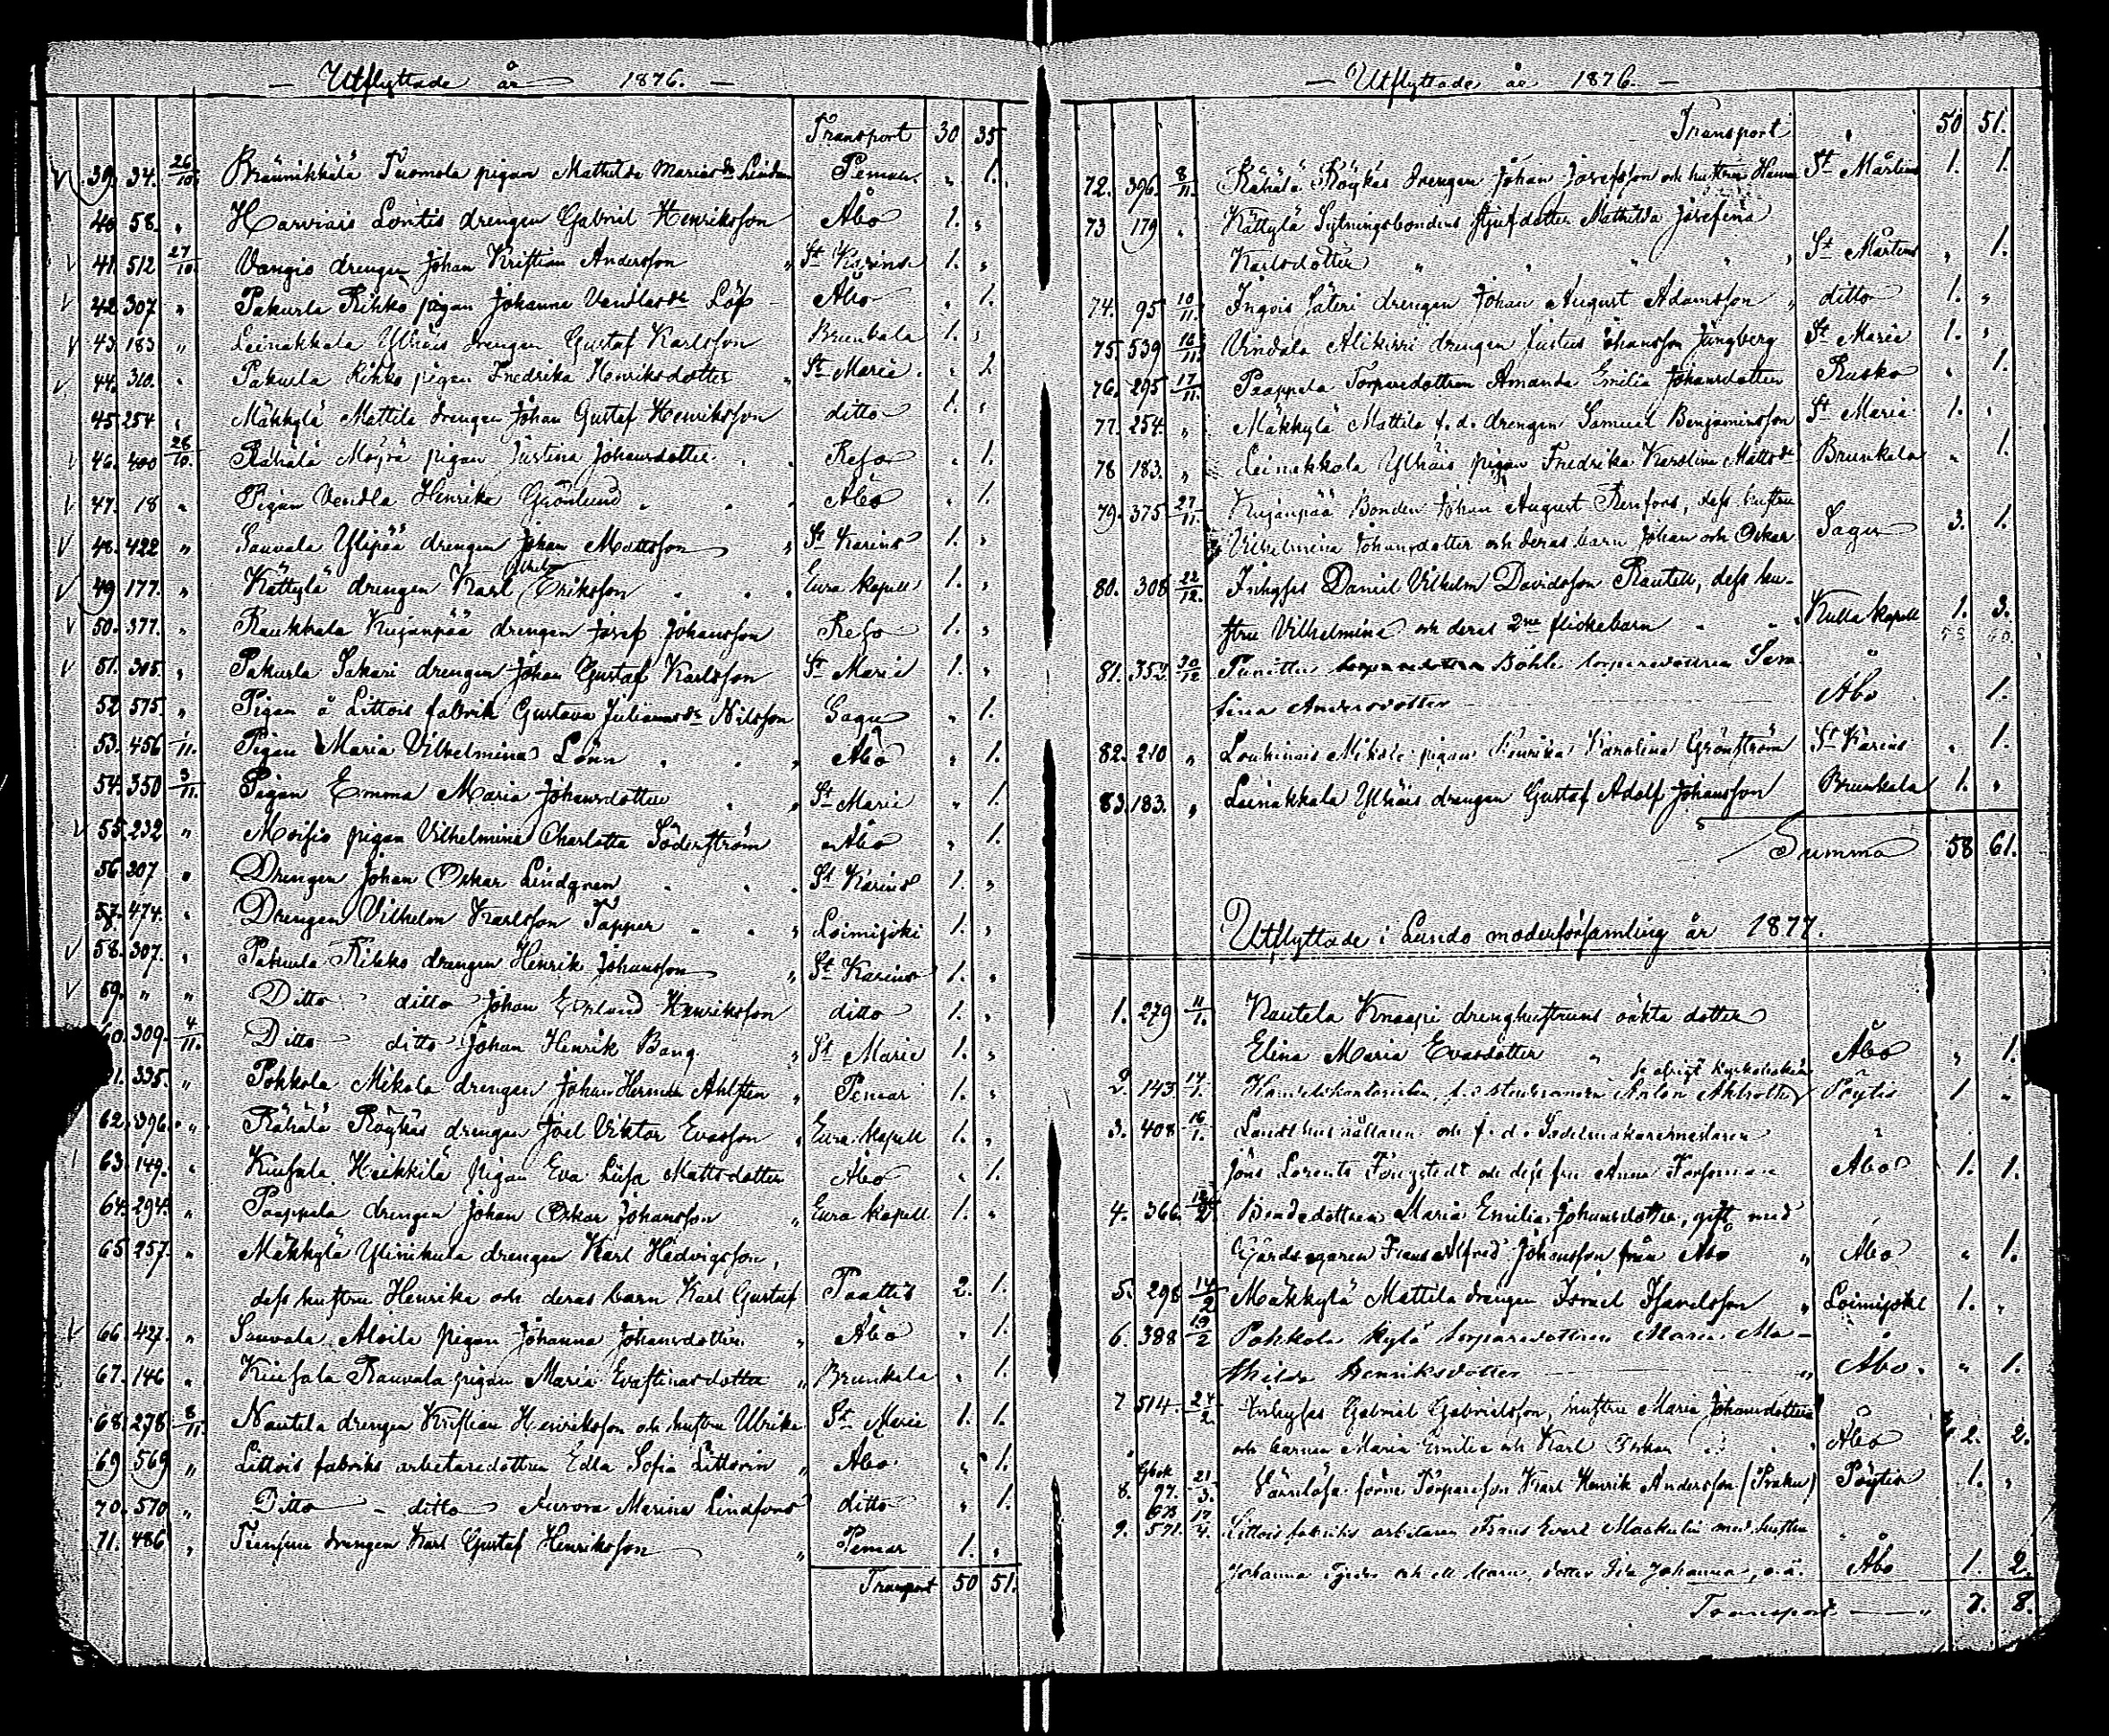 Utflyttade år 1876.
Transport 30 35
39. 34. 26/10. Bräunikkälä Tuomola pigan Mathilda Mariasdr Linden Pemar „ 1.
40 58. „ Harvois Lontis drengen Gabriel Henriksson Åbo 1. „
41. 512 27/10. Vangio drengen Johan Kristian Andersson „ St Karins 1. „
42 307 „ Pakurla Rihko pigan Johanna Vendlasdr Löf Åbo „ 1.
43. 183 „ Leinakkala Ylhäis drengen Gustaf Karlsson Brunkala 1. „
44. 310. „ Pakurla Rihko pigan Fredrika Henriksdotter „ St Marie „ 1.
45. 254 „ Mäkkylä Mattila drengen Johan Gustaf Henriksson ditto 1. „
46. 400 28/10. Rähälä Möjrä pigan Justina Johansdotter Reso „ 1.
47. 18 „ Pigan Vendla Henrika Grönlund „ Åbo „ 1.
48. 422 „ Sauvala Ylipää drengen Johan Mattsson „ St Karins 1. „
49 177. „ Kättylä drengen Karl Vilhelm Eriksson Eura kapell 1. „
50. 377. „ Raukkala Kujanpää drengen Josef Johansson Reso 1. „
51. 305. „ Pakurla Sakari drengen Johan Gustaf Karlsson St Marie 1. „
52 575. „ Pigan å Littois fabrik Gustava Julianasdr Nilsson Sagu „ 1.
53. 456 1/11. Pigan Maria Vilhelmina Lönn „ Åbo „ 1.
54. 350 3/11. Pigan Emma Maria Johansdotter „ St Marie „ 1.
55. 232 „ Moisio pigan Vilhelmina Charlotta Söderström Åbo „ 1.
56. 307 „ Drengen Johan Oskar Lindgren St Karins 1. „
57. 474. „ Drengen Vilhelm Karlsson Tapper „ Loimijoki 1. „
58. 307. „ Pakurla Rihko drengen Henrik Johansson „ St Karins 1. „
59. „ „ Ditto ditto Johan Edvard Henriksson ditto 1. „
60. 309. 4/11. Ditto ditto Johan Henrik Bang „ St Marie 1. „
61. 335. „ Pokkola Mikola drengen Johan Herman Ahlsten „ Pemar 1. „
62. 396. „ Rähälä Röykäs drengen Joel Viktor Evasson „ Eura kapell 1. „
63. 149. „ Kuusala Heikkilä pigan Eva Lisa Mattsdotter Åbo „ 1.
64. 294. „ Paappala drengen Johan Oskar Johansson „ Eura kapell 1. „
65. 257. „ Mäkkylä Ylinikula drengen Karl Hedvigsson,
dess hustru Henrika och deras barn Karl Gustaf Paattis 2. 1.
66. 427. „ Sauvala Aloila pigan Johanna Johansdotter „ Åbo „ 1.
67. 146 „ Kuusala Rauvala pigan Maria Evastinasdotter „ Brunkala „ 1.
68. 278 8/11. Nautela drengen Kristian Henriksson och hustru Ulrika St Marie 1. 1.
69 569 „ Littois fabriks arbetaredottren Edla Sofia Littorin „ Åbo „ 1.
70. 570 „ Ditto - ditto Aurora Marina Lindfors ditto „ 1.
71. 486 „ drengen Karl Gustaf Henriksson „ Pemar 1. „
Transport 50 51.
Utflyttade år 1876.
Transport 50 51.
72. 396. 8/11. Rähälä Röykäs drengen Johan Josefsson och hustru Hanna St Mårtens 1. 1.
73 179 „ Kättylä Sytningsbondens styfdotter Mathilda Josefina
Karlsdotter „ St Mårtens „ 1.
74. 95 10/11. Ingois Säteri drengen Johan August Adamsson „ ditto 1. „
75. 539 16/11. Vindala Alikirri drengen Justus Johansson Ljungberg St Marie 1. „
76. 295 17/11. Paappala Torparedottren Amanda Emilia Johansdotter Rusko „ 1.
77. 254. „ Mäkkylä Mattila f.d. drengen Samuel Benjaminsson St Marie 1. „
78 183. „ Leinakkala Ylhäis pigan Fredrika Karolina Mattsdr Brunkala „ 1.
79. 375 27/11. Kujanpää Bonden Johan August Renfors, dess hustru
Vilhelmina Johansdotter och deras barn Johan och Oskar Sagu 3. 1.
80. 308 22/12. Inhyses Daniel Vilhelm Davidsson Rautell, dess hu-
stru Vilhelmina och deras 2ne flickebarn Kulla kapell 1. 3.
81. 352. 30/12 Punittu Böhle torparedottren Sera-
fina Andersdotter Åbo 1.
82. 210 „ Loukinais Mikola pigan Henrika Karolina Grönström St Karins „ 1.
83. 183. „ Leinakkala Ylhäis drengen Gustaf Adolf Johansson Brunkala 1. „
Summa 58 61.
Utflyttade i Lundo moderförsamling år 1877.
1. 279 11/1. Nautela Knaapi drenghustruns oäkta dotter
Elina Maria Evasdotter „ Åbo „ 1.
2. 143 14/1. f.d. studeranden Anton Ahlroth Pöytis 1 „
3. 408 16/1. och f.d. Sadelmakaremästaren
Jöns Lorents och dess fru Anna Forssman Åbo 1. 1.
4. 366. 12/2 Bondedottren Maria Emilia Johansdotter, gift med
Gårdsegaren Frans Alfred Johansson från Åbo „ Åbo „ 1.
5. 298 14/2 Mäkkylä Mattila drengen Israel Israelsson „ Loimijoki 1. „
6. 388 19/2 Pahkola kylä torparedottren Maria Ma-
thilda Henriksdotter „ Åbo. „ 1.
7 514. 24/2 Inhyses Gabriel Gabrielsson, hustru Maria Johansdotter
och barnen Maria Emilia och Karl Oskar Åbo 2. 2.
8. 97. 21/3. Värnlösa förre Torparesson Karl Henrik Andersson (Praku) Pöytis 1. „
9. 571. 17/4. Littois fabriks arbetaren Frans Evert Maskulin med hustru
Johanna och ett barn, dotter Ida Johanna, o.ä. Åbo 1. 2.
Transport „ 7. 8.